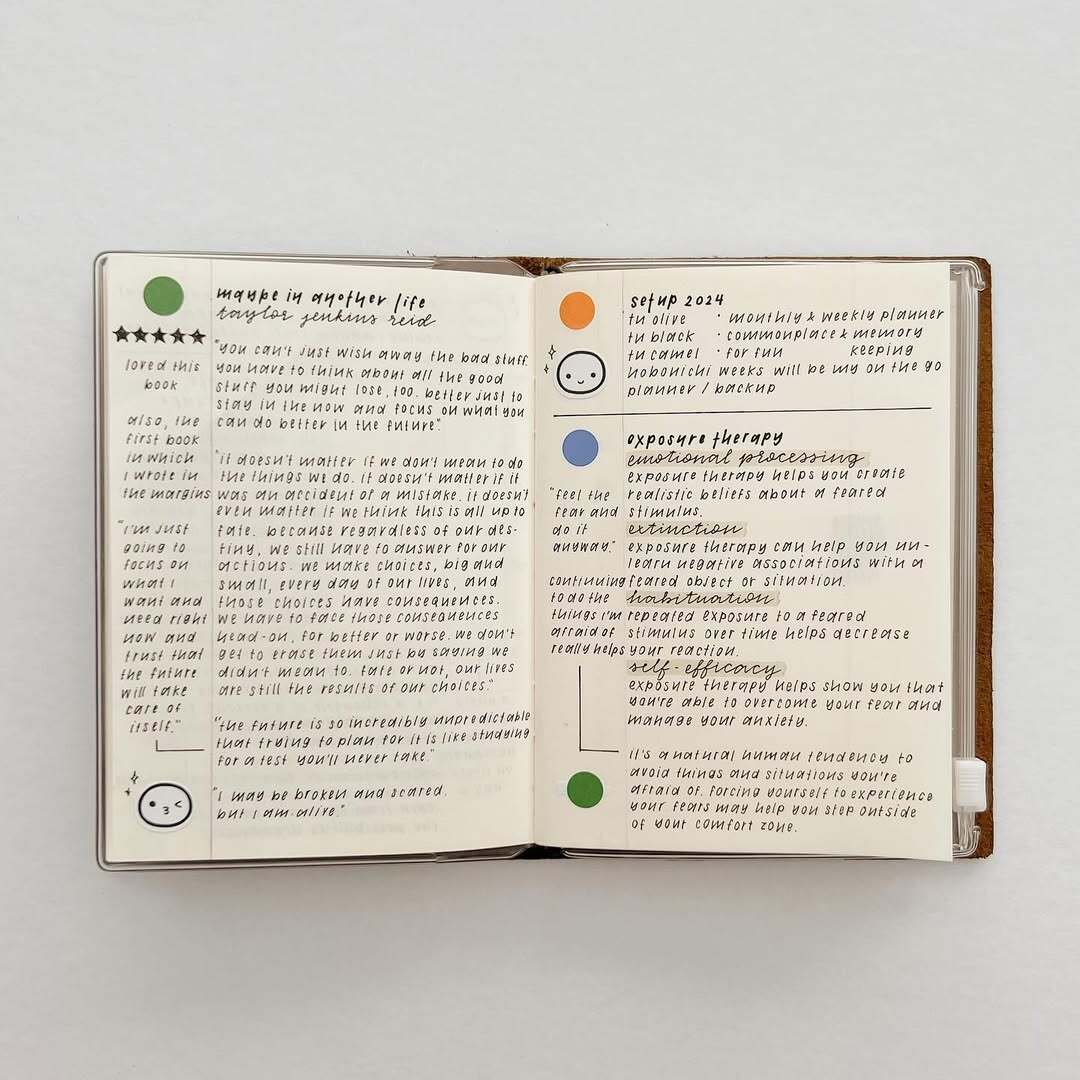 maybe in another life
taylor jenkins reid
loved this
book
also, the
first book
in which
I wrote in
the margins
"i'm just
going to
focus on
what I
want and
need right
now and
trust that
the future
will take
care of
itself."
"you can't just wish away the bad stuff.
you have to think about all the good
stuff you might lose, too. better just to
stay in the now and focus on what you
can do better in the future."
"it doesn't matter if we don't mean to do
the things we do. it doesn't matter if it
was an accident of a mistake. it doesn't
even matter if we think this is all up to
fate. because regardless of our des-
tiny, we still have to answer for our
actions. we make choices, big and
small, every day of our lives, and
those choices have consequences.
we have to face those consequences
head-on, for better or worse. we don't
get to erase them just by saying we
didn't mean to. fate or not, our lives
are still the results of our choices."
"the future is so incredibly unpredictable
that trying to plan for it is like studying
for a test you'll never take."
"I may be broken and scared.
but I am alive."
setup 2024
tn olive · monthly & weekly planner
tn black · commonplace & memory
keeping
tn camel · for fun
hobonichi weeks will be my on the go
planner / backup
exposure therapy
emotional processing
exposure therapy helps you create
realistic beliefs about a feared
stimulus.
extinction
exposure therapy can help you un-
learn negative associations with a
feared object or situation.
habituation
repeated exposure to a feared
stimulus over time helps decrease
your reaction.
self-efficacy
exposure therapy helps show you that
you're able to overcome your fear and
manage your anxiety.
"feel the
fear and
do it
anyway."
continuing
to do the
things i'm
afraid of
really helps
it's a natural human tendency to
avoid things and situations you're
afraid of. forcing yourself to experience
your fears may help you step outside
of your comfort zone.